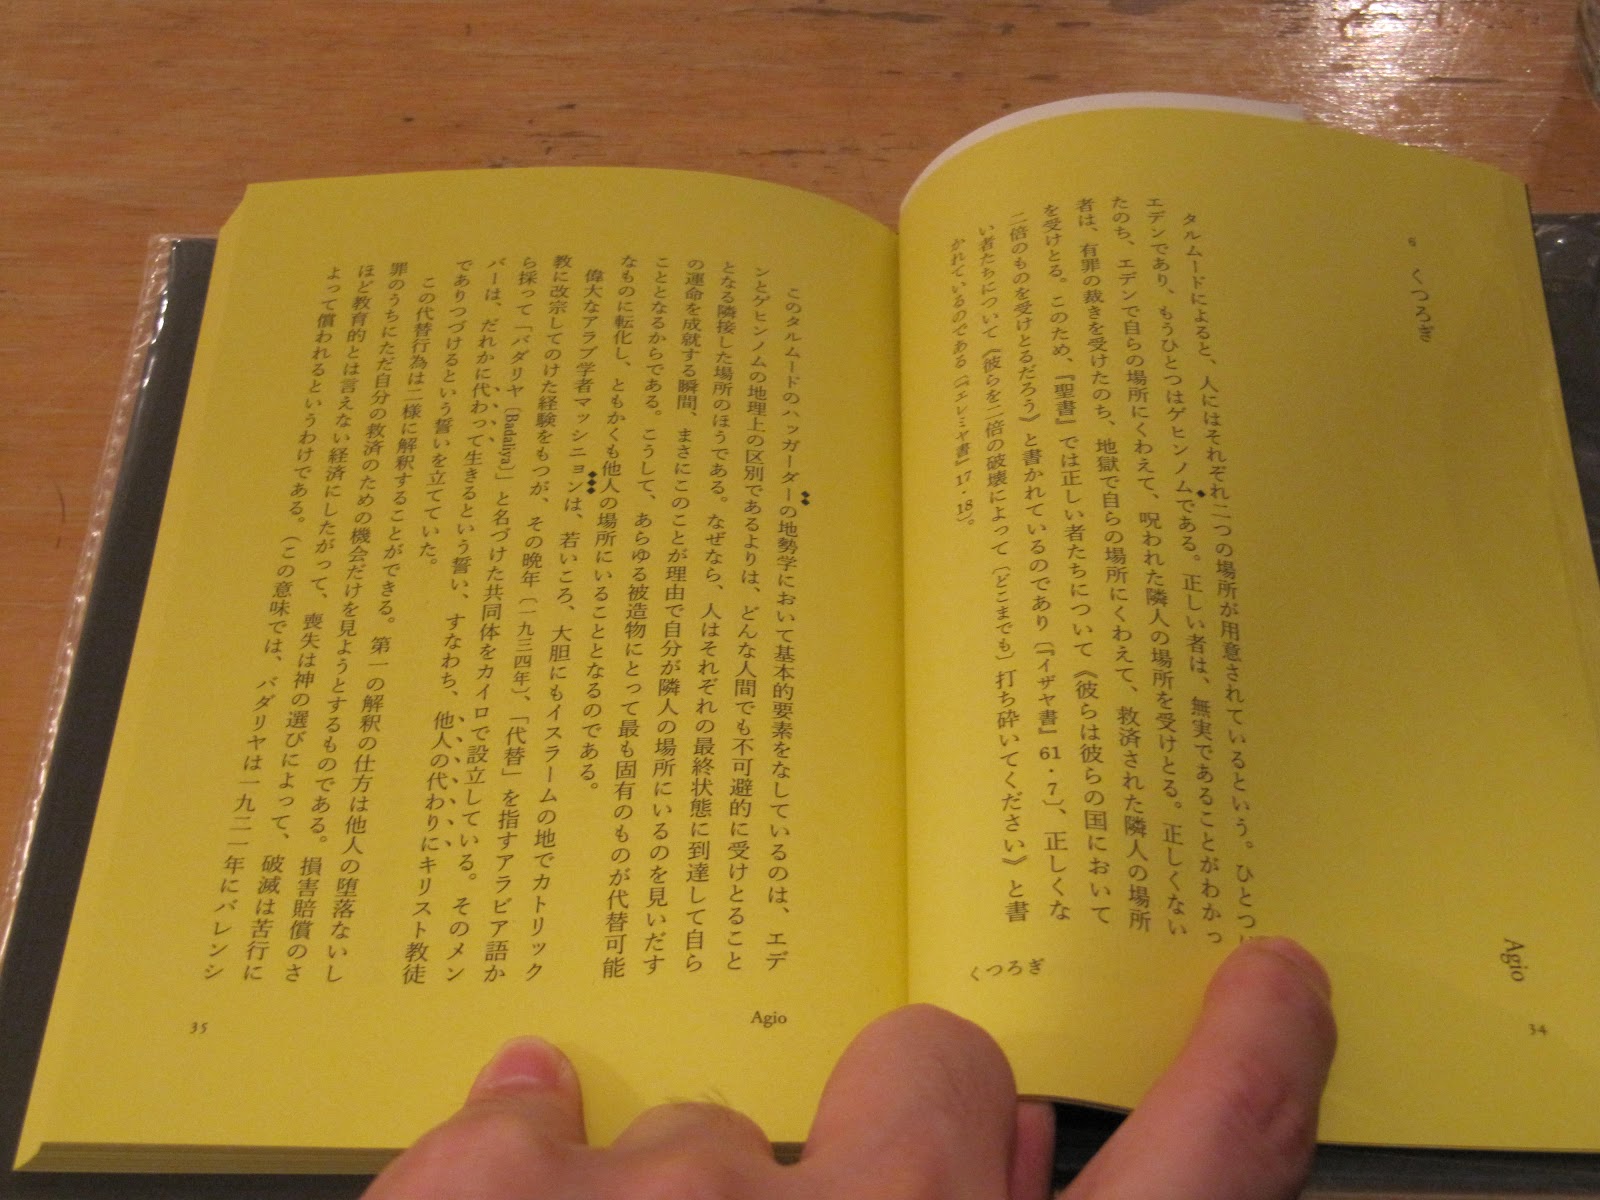 6 くつろぎ
Agio
タルムードによると、人にはそれぞれ二つの場所が用意されているという。ひとつは
エデンであり、もうひとつはゲヒンノムである。正しい者は、無実であることがわかっ
たのち、エデンで自らの場所にくわえて、呪われた隣人の場所を受けとる。正しくない
者は、有罪の裁きを受けたのち、地獄で自らの場所にくわえて、救済された隣人の場所
を受けとる。このため、『聖書』では正しい者たちについて《彼らは彼らの国において
二倍のものを受けとるだろう》と書かれているのであり（『イザヤ書』61・7）、正しくな
い者たちについて《彼らを二倍の破壊によって〔どこまでも〕打ち砕いてください》と書
かれているのである（『エレミヤ書』17・18）。
くつろぎ
34
このタルムードのハッガーダーの地勢学において基本的要素をなしているのは、エデ
ンとゲヒンノムの地理上の区別であるよりは、どんな人間でも不可避的に受けとること
となる隣接した場所のほうである。なぜなら、人はそれぞれの最終状態に到達して自ら
の運命を成就する瞬間、まさにこのことが理由で自分が隣人の場所にいるのを見いだす
こととなるからである。こうして、あらゆる被造物にとって最も固有のものが代替可能
なものに転化し、ともかくも他人の場所にいることとなるのである。
偉大なアラブ学者マッシニョンは、若いころ、大胆にもイスラームの地でカトリック
教に改宗してのけた経験をもつが、その晩年〔一九三四年〕、「代替」を指すアラビア語か
ら採って「バダリヤ〔Badaliya〕」と名づけた共同体をカイロで設立している。そのメン
バーは、だれかに代わって生きるという誓い、すなわち、他人の代わりにキリスト教徒
でありつづけるという誓いを立てていた。
この代替行為は二様に解釈することができる。第一の解釈の仕方は他人の堕落ないし
罪のうちにただ自分の救済のための機会だけを見ようとするものである。損害賠償のさ
ほど教育的とは言えない経済にしたがって、喪失は神の選びによって、破滅は苦行に
よって償われるというわけである。（この意味では、バダリヤは一九二一年にバレンシ
Agio
35